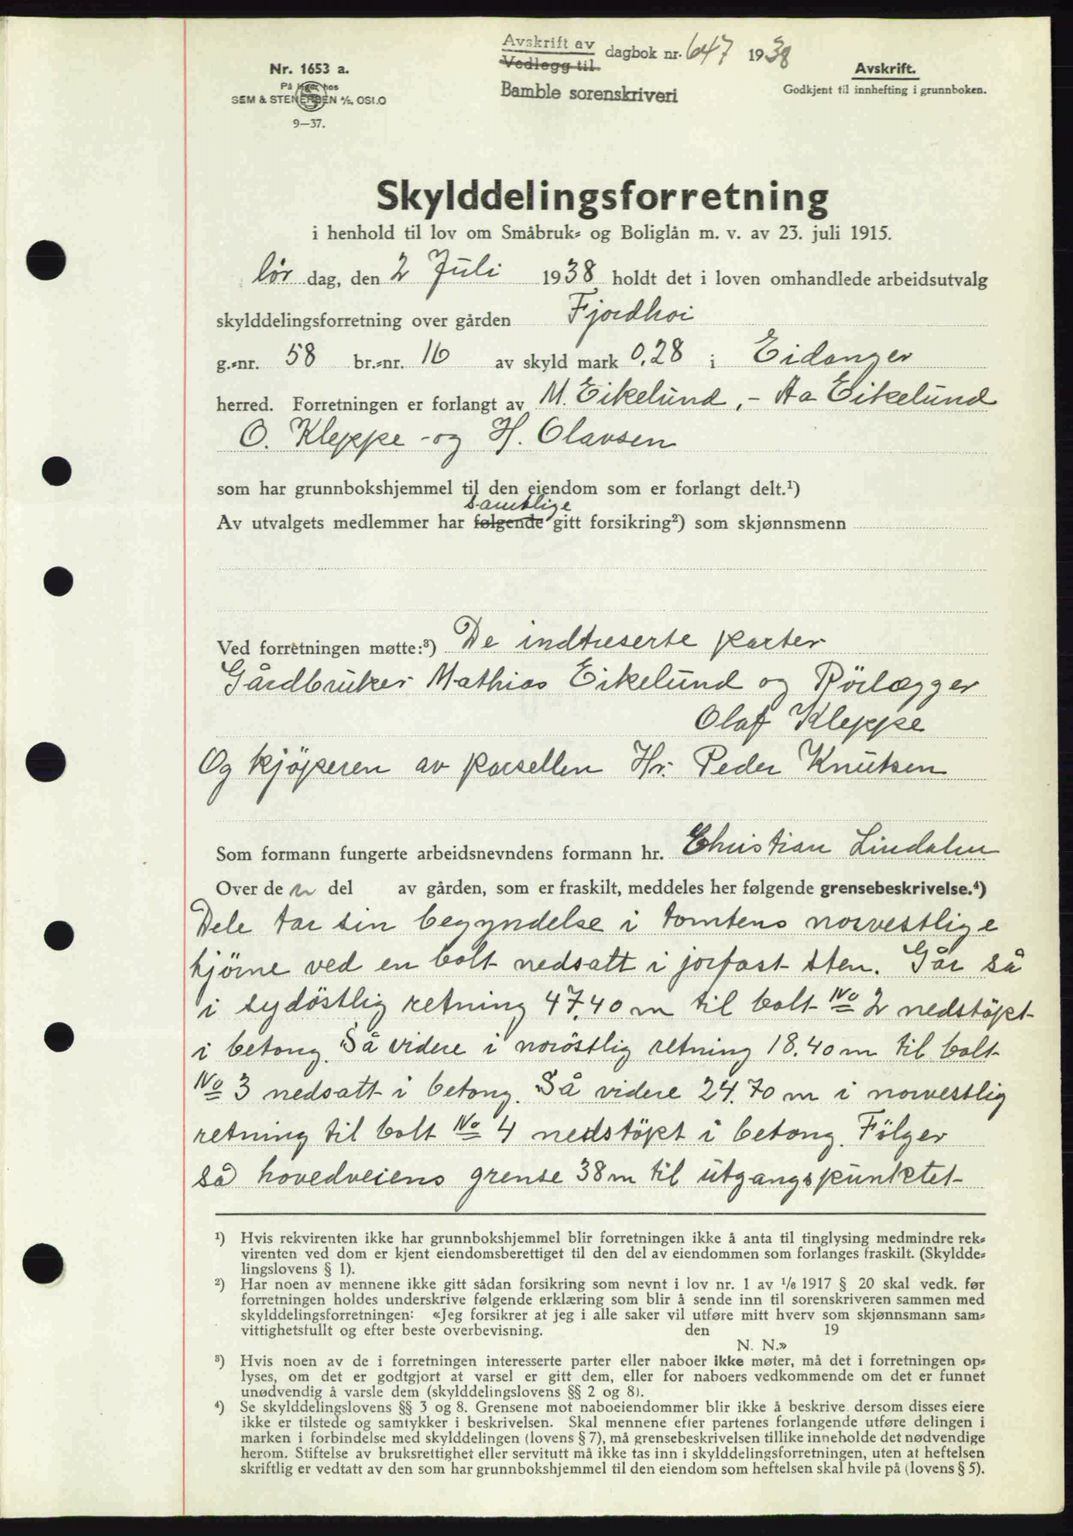 Avskrift av
Vedlegg til dagbok nr. 647 1938
Bamble sorenskriveri
Nr. 1653 a.
På lager hos
SEM & STENERSEN A/S, OSLO
9—37.
Avskrift.
Godkjent til innhefting i grunnboken.
Skylddelingsforretning
i henhold til lov om Småbruk- og Boliglån m. v. av 23. juli 1915.
lør dag, den 2 Juli 1938 holdt det i loven omhandlede arbeidsutvalg
skylddelingsforretning over gården Fjordhoi
g.-nr. 58 br.-nr. 16 av skyld mark 0,28 i Eidanger
herred. Forretningen er forlangt av M. Eikelund, - Aa Eikelund
O. Kleppe - og H. Olavsen
som har grunnbokshjemmel til den eiendom som er forlangt delt.¹)
samtlige
Av utvalgets medlemmer har følgende gitt forsikring²) som skjønnsmenn
Ved forretningen møtte:³) De indtreserte parter
Gårdbruker Mathias Eikelund og Rörlægger
Olaf Kleppe
Og kjöperen av parsellen Hr. Peder Knutsen
Som formann fungerte arbeidsnevndens formann hr. Christian Lindalen
Over de n del av gården, som er fraskilt, meddeles her følgende grensebeskrivelse.⁴)
Dele tar sin begyndelse i tomtens norvestlige
hjörne ved en bolt nedsatt i jorfast sten. Går så
i sydöstlig retning 47,40 m til bolt No 2 nedstöpt
i betong. Så videre i noröstlig retning 18.40 m til bolt
No 3 nedsatt i betong. Så videre 24.70 m i norvestlig
retning til bolt No 4 nedstöpt i betong. Fölger
så hovedveiens grense 38 m til utgangspunktet
¹) Hvis rekvirenten ikke har grunnbokshjemmel blir forretningen ikke å anta til tinglysing medmindre rek-
virenten ved dom er kjent eiendomsberettiget til den del av eiendommen som forlanges fraskilt. (Skyldde-
lingslovens § 1).
²) Har noen av mennene ikke gitt sådan forsikring som nevnt i lov nr. 1 av ¹/₆ 1917 § 20 skal vedk. før
forretningen holdes underskrive følgende erklæring som blir å sende inn til sorenskriveren sammen med
skylddelingsforretningen: «Jeg forsikrer at jeg i alle saker vil utføre mitt hverv som skjønnsmann sam-
vittighetsfullt og efter beste overbevisning. den 19
N. N.»
³) Hvis noen av de i forretningen interesserte parter eller naboer ikke møter, må det i forretningen op-
lyses, om det er godtgjort at varsel er gitt dem, eller for naboers vedkommende om det er funnet
unødvendig å varsle dem (skylddelingslovens §§ 2 og 8).
⁴) Se skylddelingslovens §§ 3 og 8. Grensene mot naboeiendommer blir ikke å beskrive dersom disses eiere
ikke er tilstede og samtykker i beskrivelsen. Skal mennene efter partenes forlangende utføre delingen i
marken i forbindelse med skylddelingen (lovens § 7), må grensebeskrivelsen tillike inneholde det nødvendige
herom. Stiftelse av bruksrettighet eller servitutt må ikke tas inn i skylddelingsforretningen, uten at heftelsen
skriftlig er vedtatt av den som har grunnbokshjemmel til den eiendom som heftelsen skal hvile på (lovens § 5).